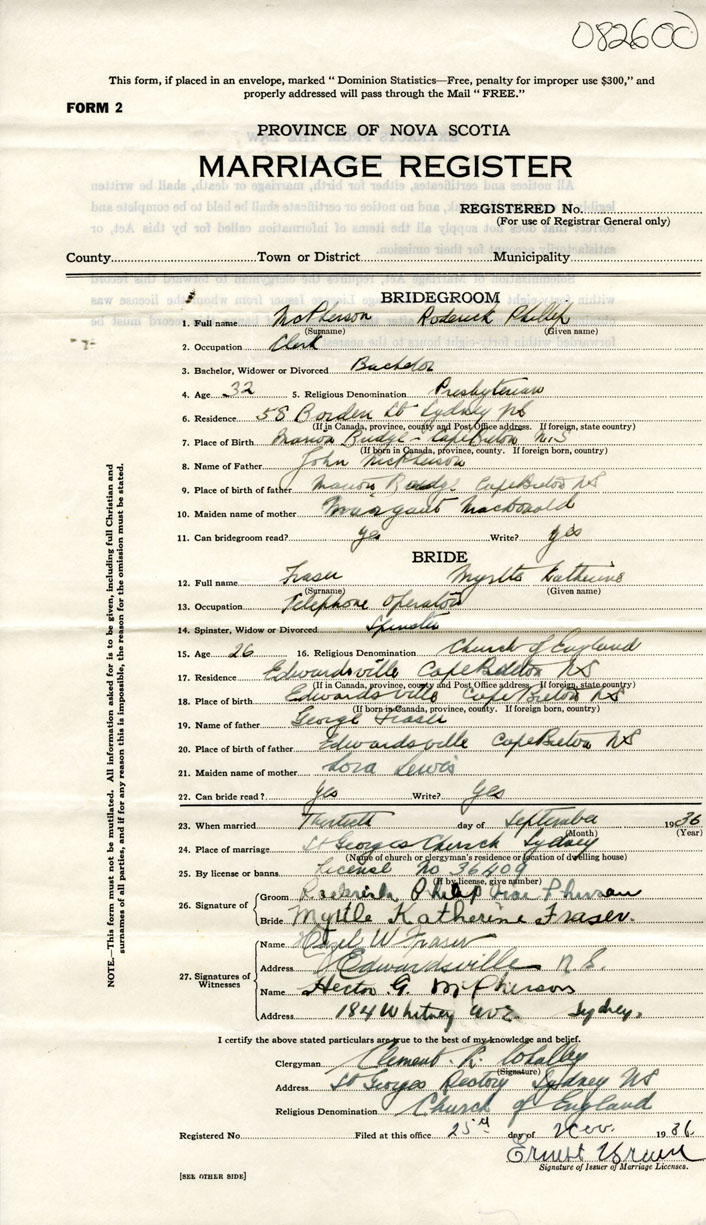 082600
This form, if placed in an envelope, marked " Dominion Statistics—Free, penalty for improper use $300," and
properly addressed will pass through the Mail " FREE."
FORM 2
PROVINCE OF NOVA SCOTIA
MARRIAGE REGISTER
REGISTERED No.
(For use of Registrar General only)
County Town or District Municipality
BRIDEGROOM
1. Full name McPherson Roderick Phillip
(Surname) (Given name)
2. Occupation Clerk
3. Bachelor, Widower or Divorced Bachelor
4. Age 32 5. Religious Denomination Presbyterian
6. Residence 58 Borden St Sydney NS
(If in Canada, province, county and Post Office address. If foreign, state country)
7. Place of Birth Marion Bridge - Cape Breton N.S
(If born in Canada, province, county. If foreign born, country)
8. Name of Father John McPherson
9. Place of birth of father Marion Bridge Cape Breton NS
10. Maiden name of mother Margaret Macdonald
11. Can bridegroom read? yes Write? yes
BRIDE
12. Full name Fraser Myrtle Katherine
(Surname) (Given name)
13. Occupation Telephone Operator
14. Spinster, Widow or Divorced Spinster
15. Age 26 16. Religious Denomination Church of England
17. Residence Edwardsville Cape Breton NS
(If in Canada, province, county and Post Office address. If foreign, state country)
18. Place of birth Edwardsville Cape Breton NS
(If born in Canada, province, county. If foreign born, country)
19. Name of father George Fraser
20. Place of birth of father Edwardsville Cape Breton NS
21. Maiden name of mother Lora Lewis
22. Can bride read? Yes Write? Yes
23. When married Thirtieth day of September 1936
(Month) (Year)
24. Place of marriage St Georges Church Sydney
(Name of church or clergyman's residence or location of dwelling house)
25. By license or banns License No 36409
(If by license, give number)
26. Signature of Groom Roderick Philip MacPherson
Bride Myrtle Katherine Fraser.
27. Signatures of Witnesses
Name W Fraser
Address Edwardsville N.S.
Name Hector G. McPherson
Address 184 Whitney Ave Sydney.
I certify the above stated particulars are true to the best of my knowledge and belief.
Clergyman Clement R. Whalley
(Signature)
Address St Georges Rectory Sydney NS
Religious Denomination Church of England
Registered No. Filed at this office 25th day of Nov. 1936.
Ernest
Signature of Issuer of Marriage Licenses.
[SEE OTHER SIDE]
NOTE.—This form must not be mutilated. All information asked for is to be given, including full Christian and
surnames of all parties, and if for any reason this is impossible, the reason for the omission must be stated.